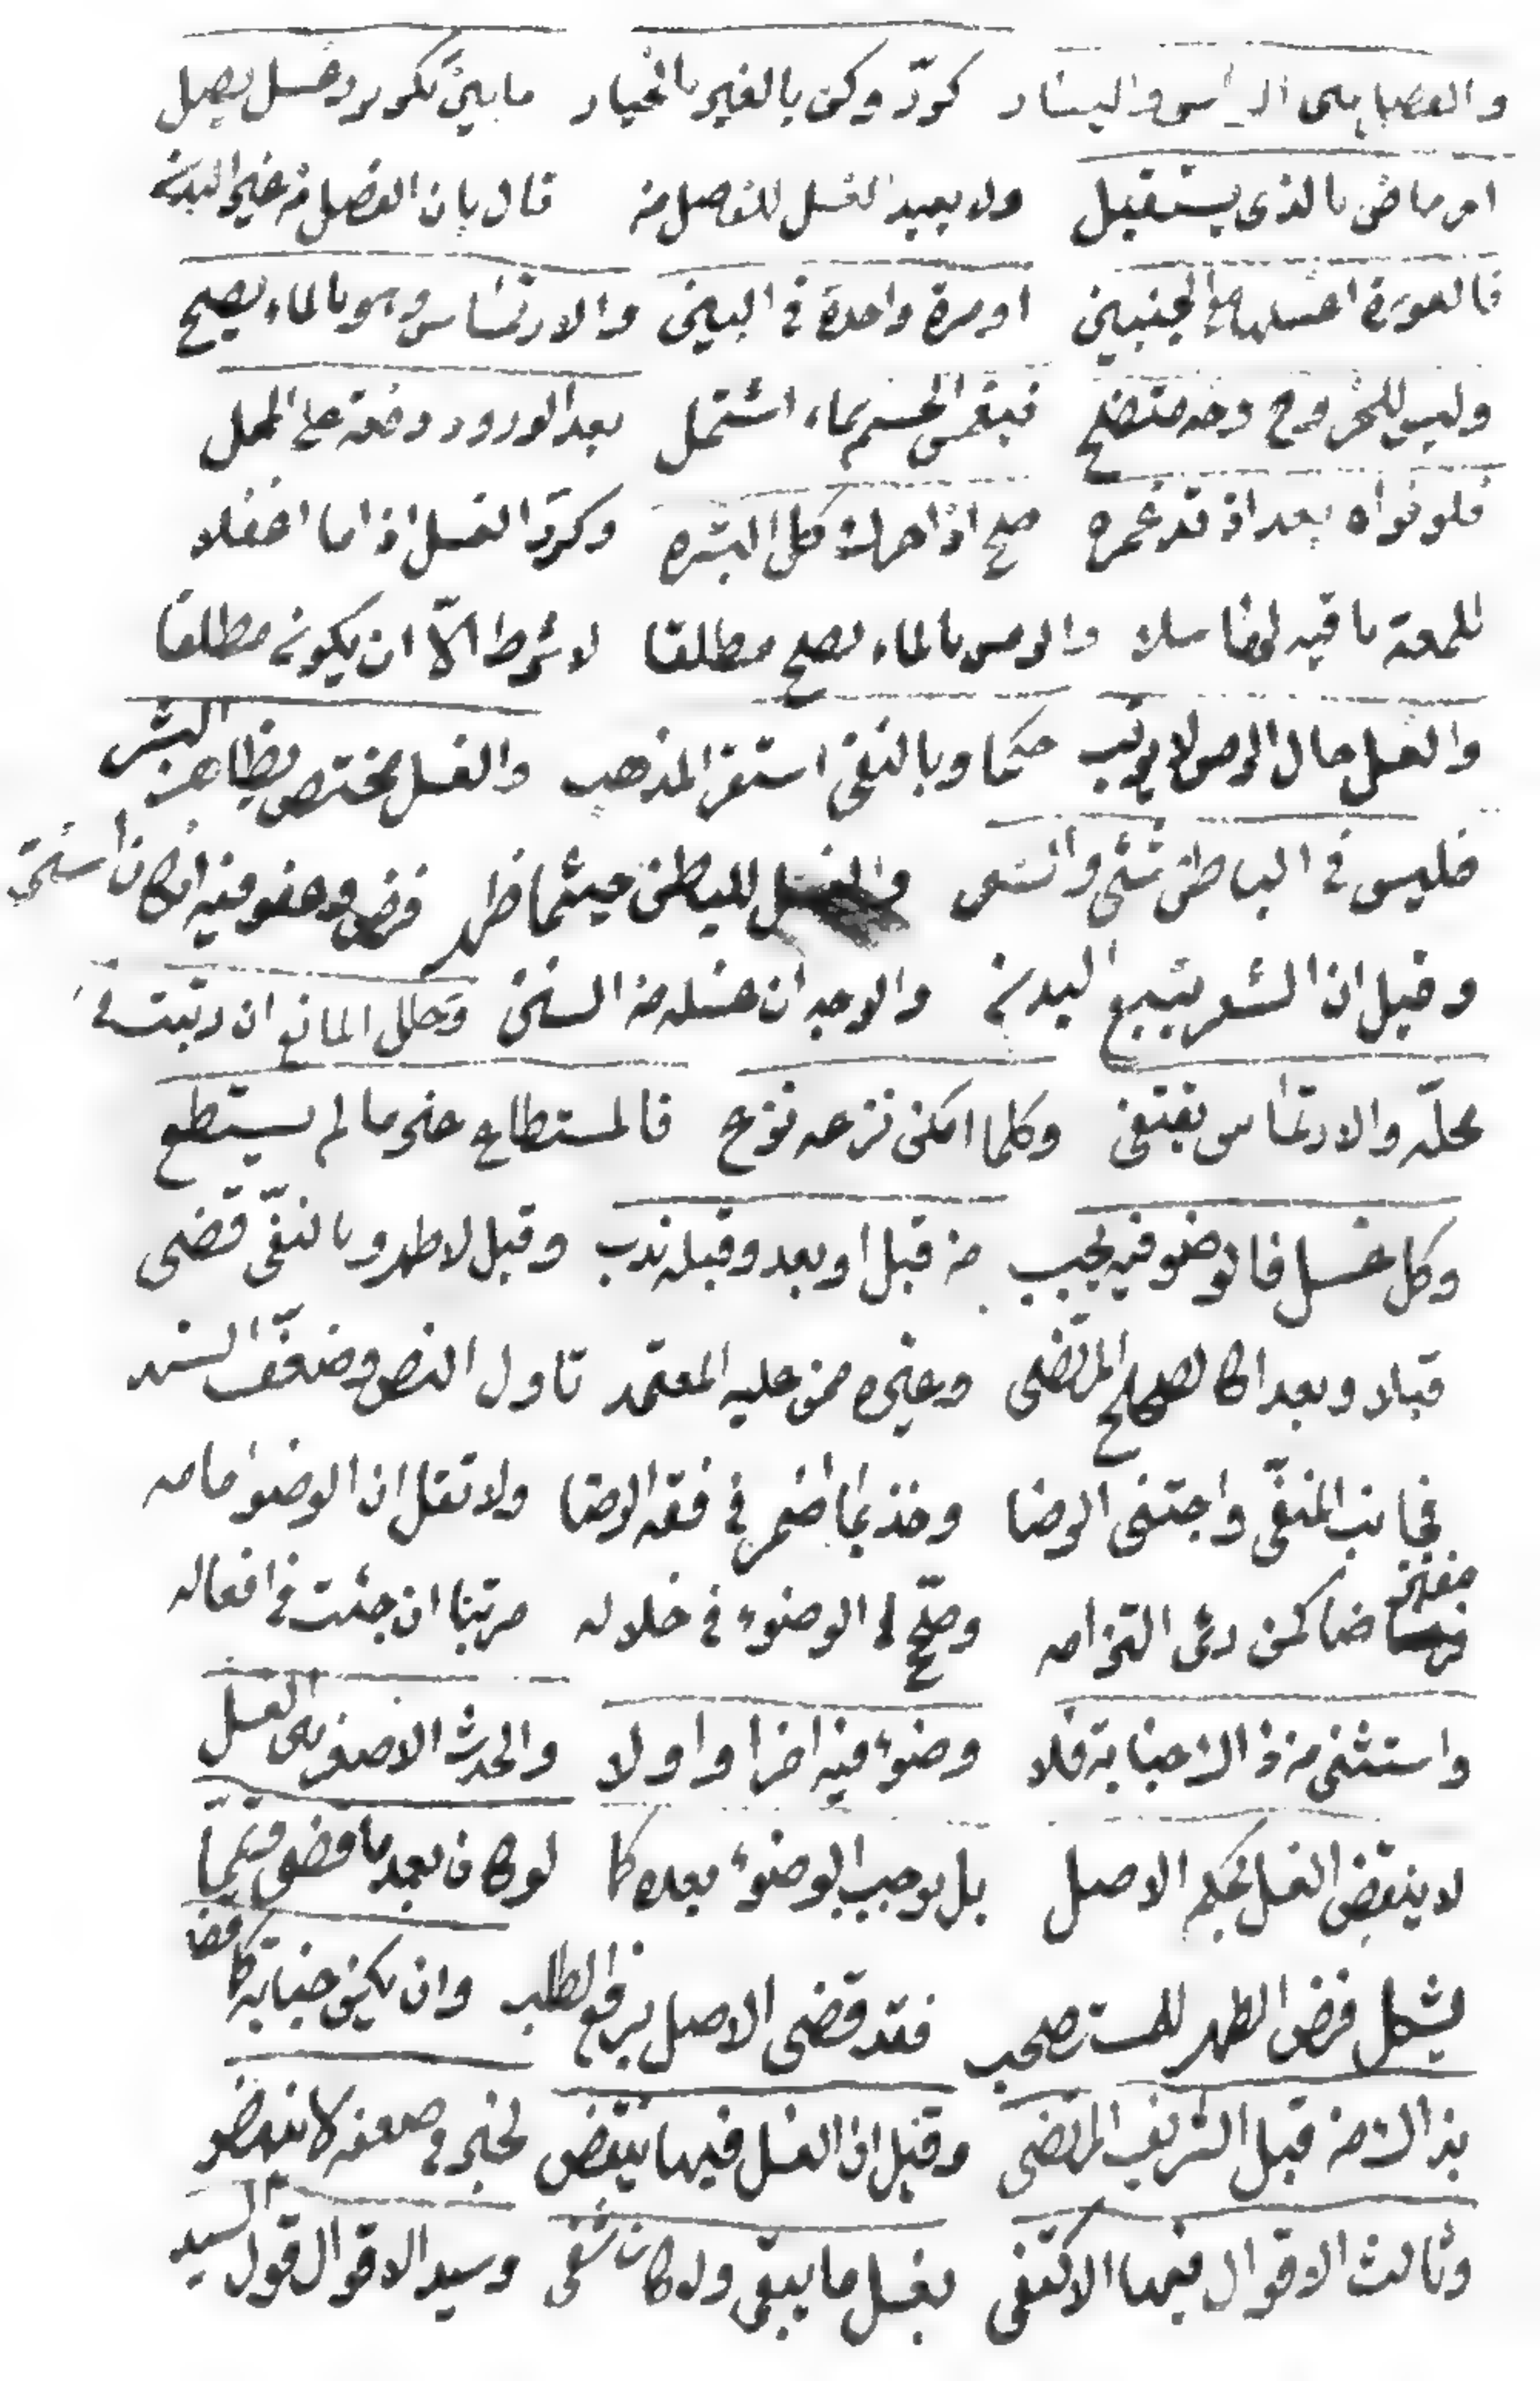 والعضا بين الراس واليسار كرّر وكن بالغير بالخيار ما بين تكرير وغسل يصل
امر ماض بالذي يستقبل ولا يعيد الغسل للفصل من قال بان الفصل من غير البدن
فالعورة اغسلها مع الجنبين او مرة واحدة في البين والارتماس وهو بالماء يصح
وليس للخروج وجه متضح فيغمس الجسم بماء اشتمل بعد الورود دفعة على المحل
فلو نواه بعد اذ قد غمره صح اذا حرك كل البشره وكرّر الغسل اذا ما اغفلا
للمعة باقيه لها سلا والرمس بالماء يصح مطلقا لا شرط الّا ان يكون مطلقا
والغسل حال الرمس لا يرتب حكما وبالنفي استقر المذهب والغسل مختص بظاهر البشر
فليس في الباطن شئ والشعر والغسل للباطن حيثما ظهر فرض وعفو فيه ان كان استتر
وقيل ان الشعر يتبع البدن والاوجه ان غسله من السنن وخلل المانع ان رتبت في
محلّه والارتماس يقتفي وكلما امكن نزعه نزع فالمستطاع غير ما لم يستطع
وكل غسل فالوضوء فيه يجب من قبل او بعد وقبله ندب وقيل لا طهر وبالنفي قضى
قبلا وبعدا كالصحاح المرتضى وغيره ممن عليه المعتمد تاول النص وضعّف السند
فجانب المنفيّ واجتنى الرضا وخذ بما اضمر في فقه الرضا ولا تقل ان الوضوء مامه
مفترضا كمن رئى التزامه وصحّ لي الوضوء في خلاله مرتبا ان جئت في افعاله
واستثنى من ذاك الجنابة فلا وضوء فيه اخرا واولا والحدث الاصغر بين الغسل
لا ينقض الغسل بحكم الاصل بل يوجب الوضوء بعده كما لو كان بعد ما مضى متمما
يشكل فرض الطهر للمستصحب فقد قضى الاصل برفع الطلب وان يكن جنابة كما قضا
بذاك من قبل الشريف المرتضى وقيل ان الغسل فيها ينقض لخبر في ضعفه لا ينهض
وثالث الاقوال فيها الاكتفى بغسل ما يبقى ولا كان شفى وسيد الاقوال قول السيد